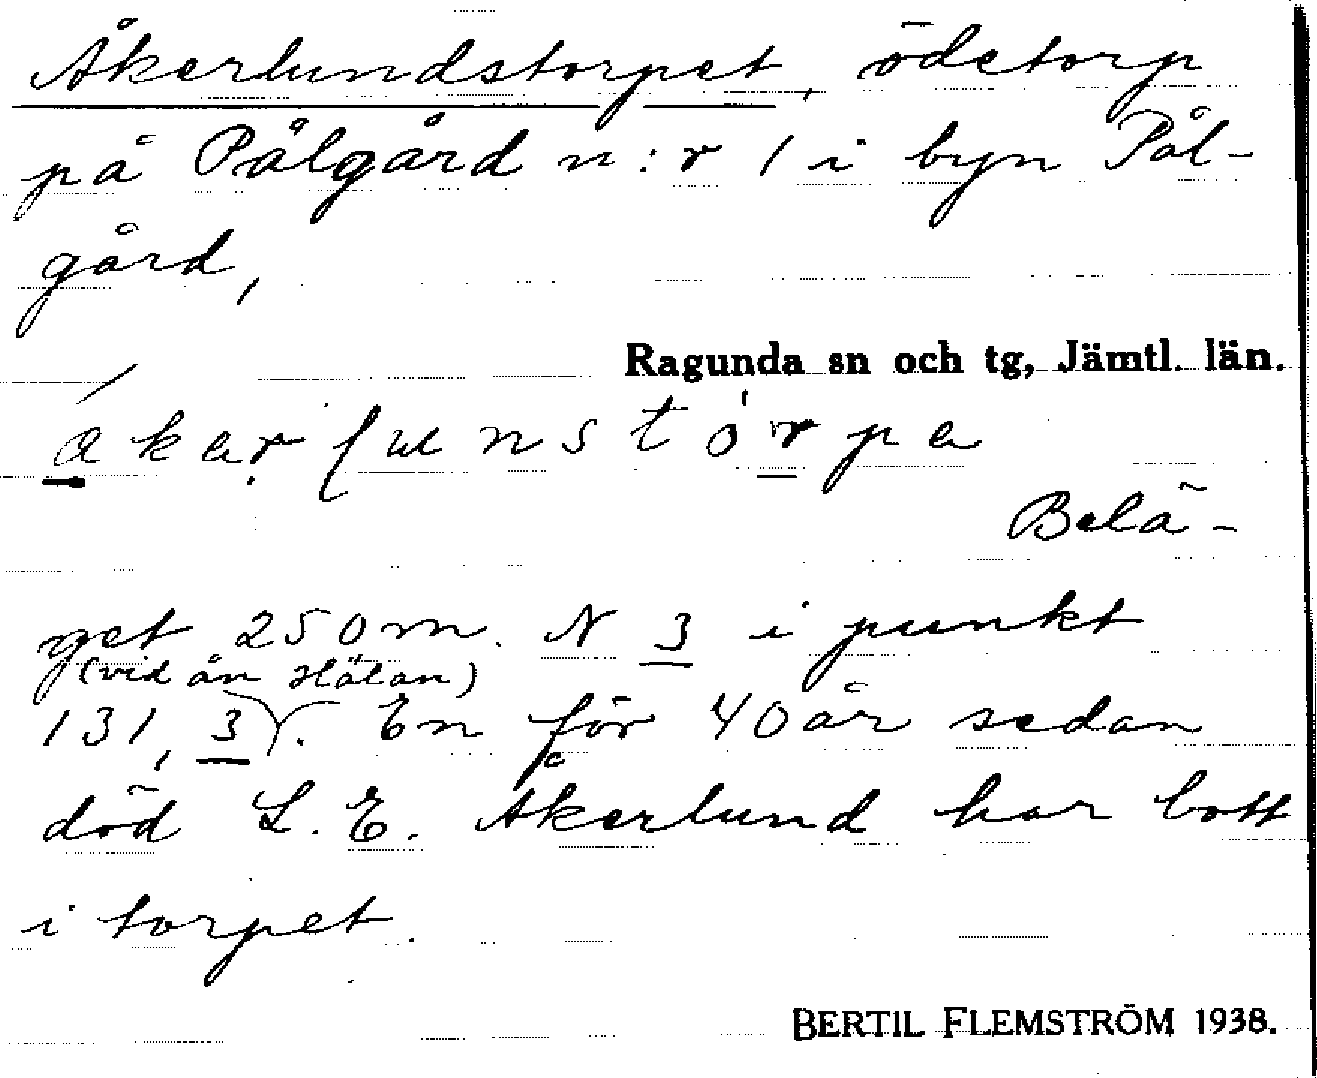 Åkerlundstorpet, ödetorp
på Pålgård n:r 1 i byn Pål-
gård,
Ragunda sn och tg, Jämtl. län.
Belä-
get 250 m. N 3 i punkt
(vid ån Hätan)
131, 3). En för 40 år sedan
död L. E. Åkerlund har bott
i torpet.
BERTIL FLEMSTRÖM 1938.